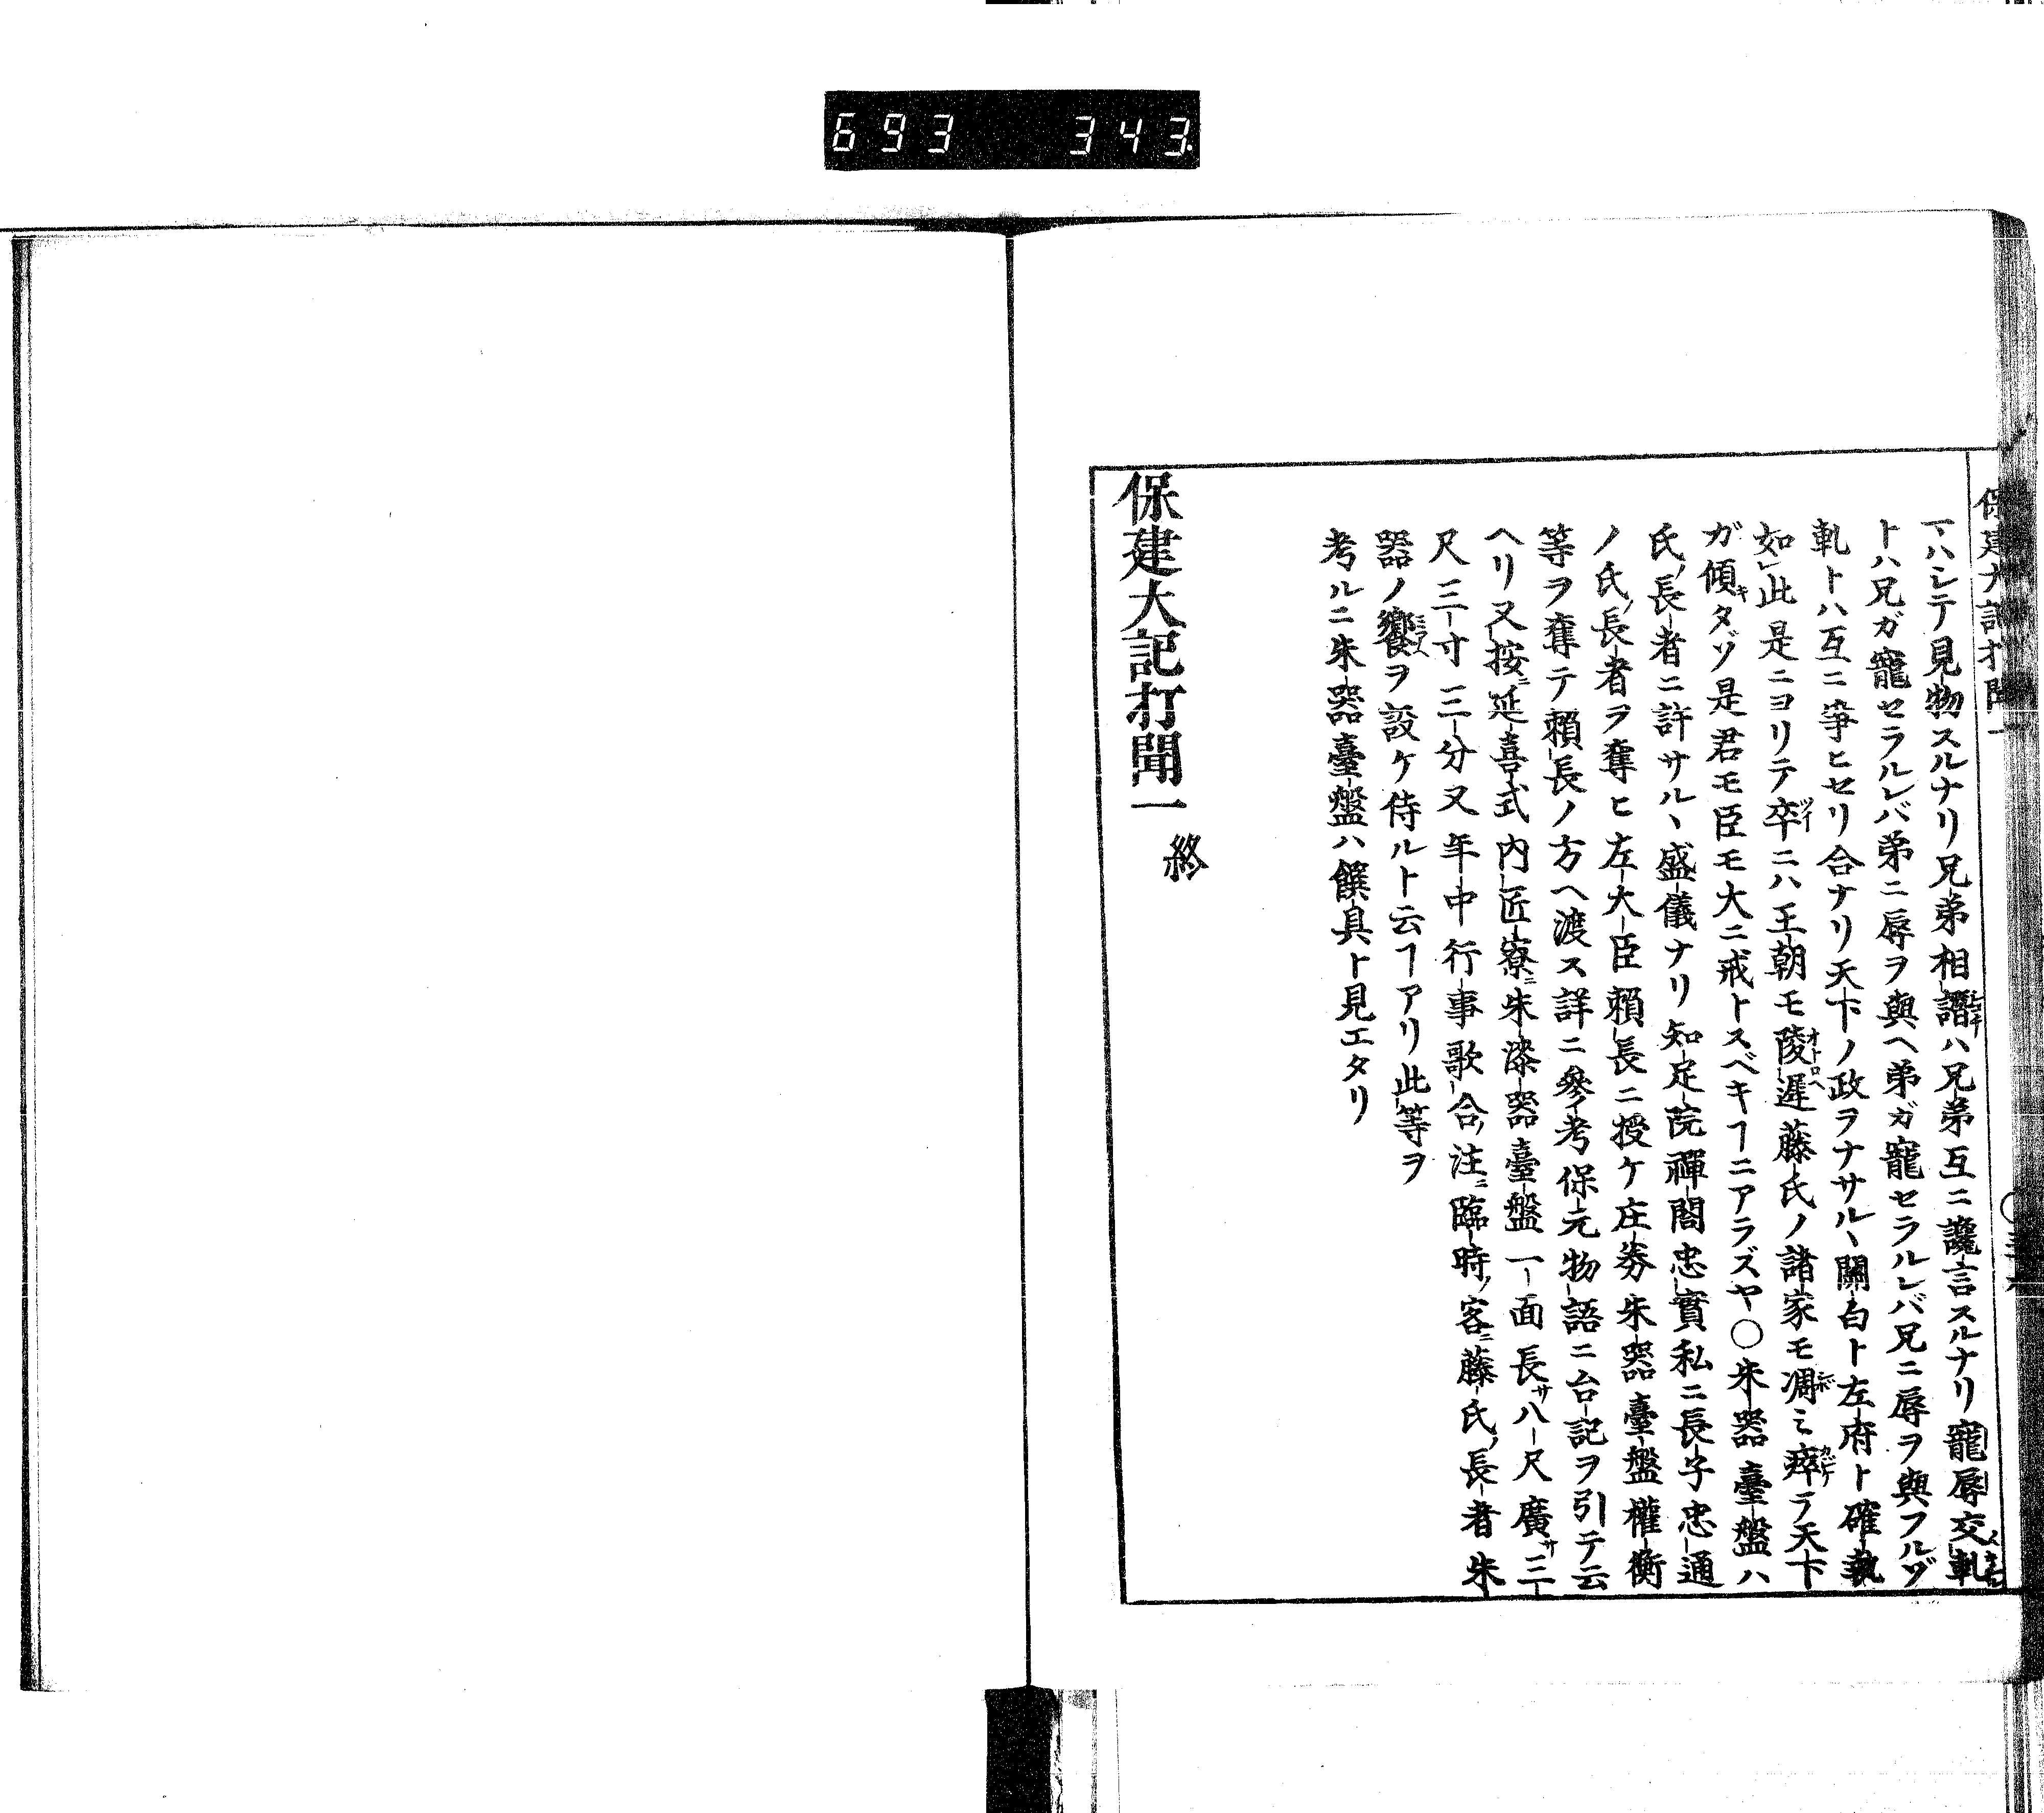 693 343.
保建大記打聞一
ハシテ見物スルナリ兄弟相譖ハ兄弟互ニ讒言スルナリ寵辱交軋
トハ兄ガ寵セラルレバ弟ニ辱ヲ與ヘ弟ガ寵セラルレバ兄ニ辱ヲ與フルゾ
軋トハ互ニ爭ヒセリ合ナリ天下ノ政ヲナサルヽ關白ト左府ト確執
如此是ニヨリテ卒ニハ王朝モ陵遲藤氏ノ諸家モ凋ミ瘁テ天下
ガ傾タゾ是君モ臣モ大ニ戒トスベキヿニアラズヤ○朱器臺盤ハ
氏ノ長者ニ許サルヽ盛儀ナリ知足院禪閤忠實私ニ長子忠通
ノ氏ノ長者ヲ奪ヒ左大臣賴長ニ授ケ庄劵朱器臺盤權衡
等ヲ奪テ賴長ノ方ヘ渡ス詳ニ參考保元物語ニ台記ヲ引テ云
ヘリ又按ニ延喜式内匠寮ニ朱漆器臺盤一面長サ八尺廣サ三
尺三寸三分又年中行事歌合ノ注ニ臨時ノ客ニ藤氏ノ長者朱
器ノ饗ヲ設ケ侍ルト云ヿアリ此等ヲ
考ルニ朱器臺盤ハ饌具ト見エタリ
保建大記打聞一終